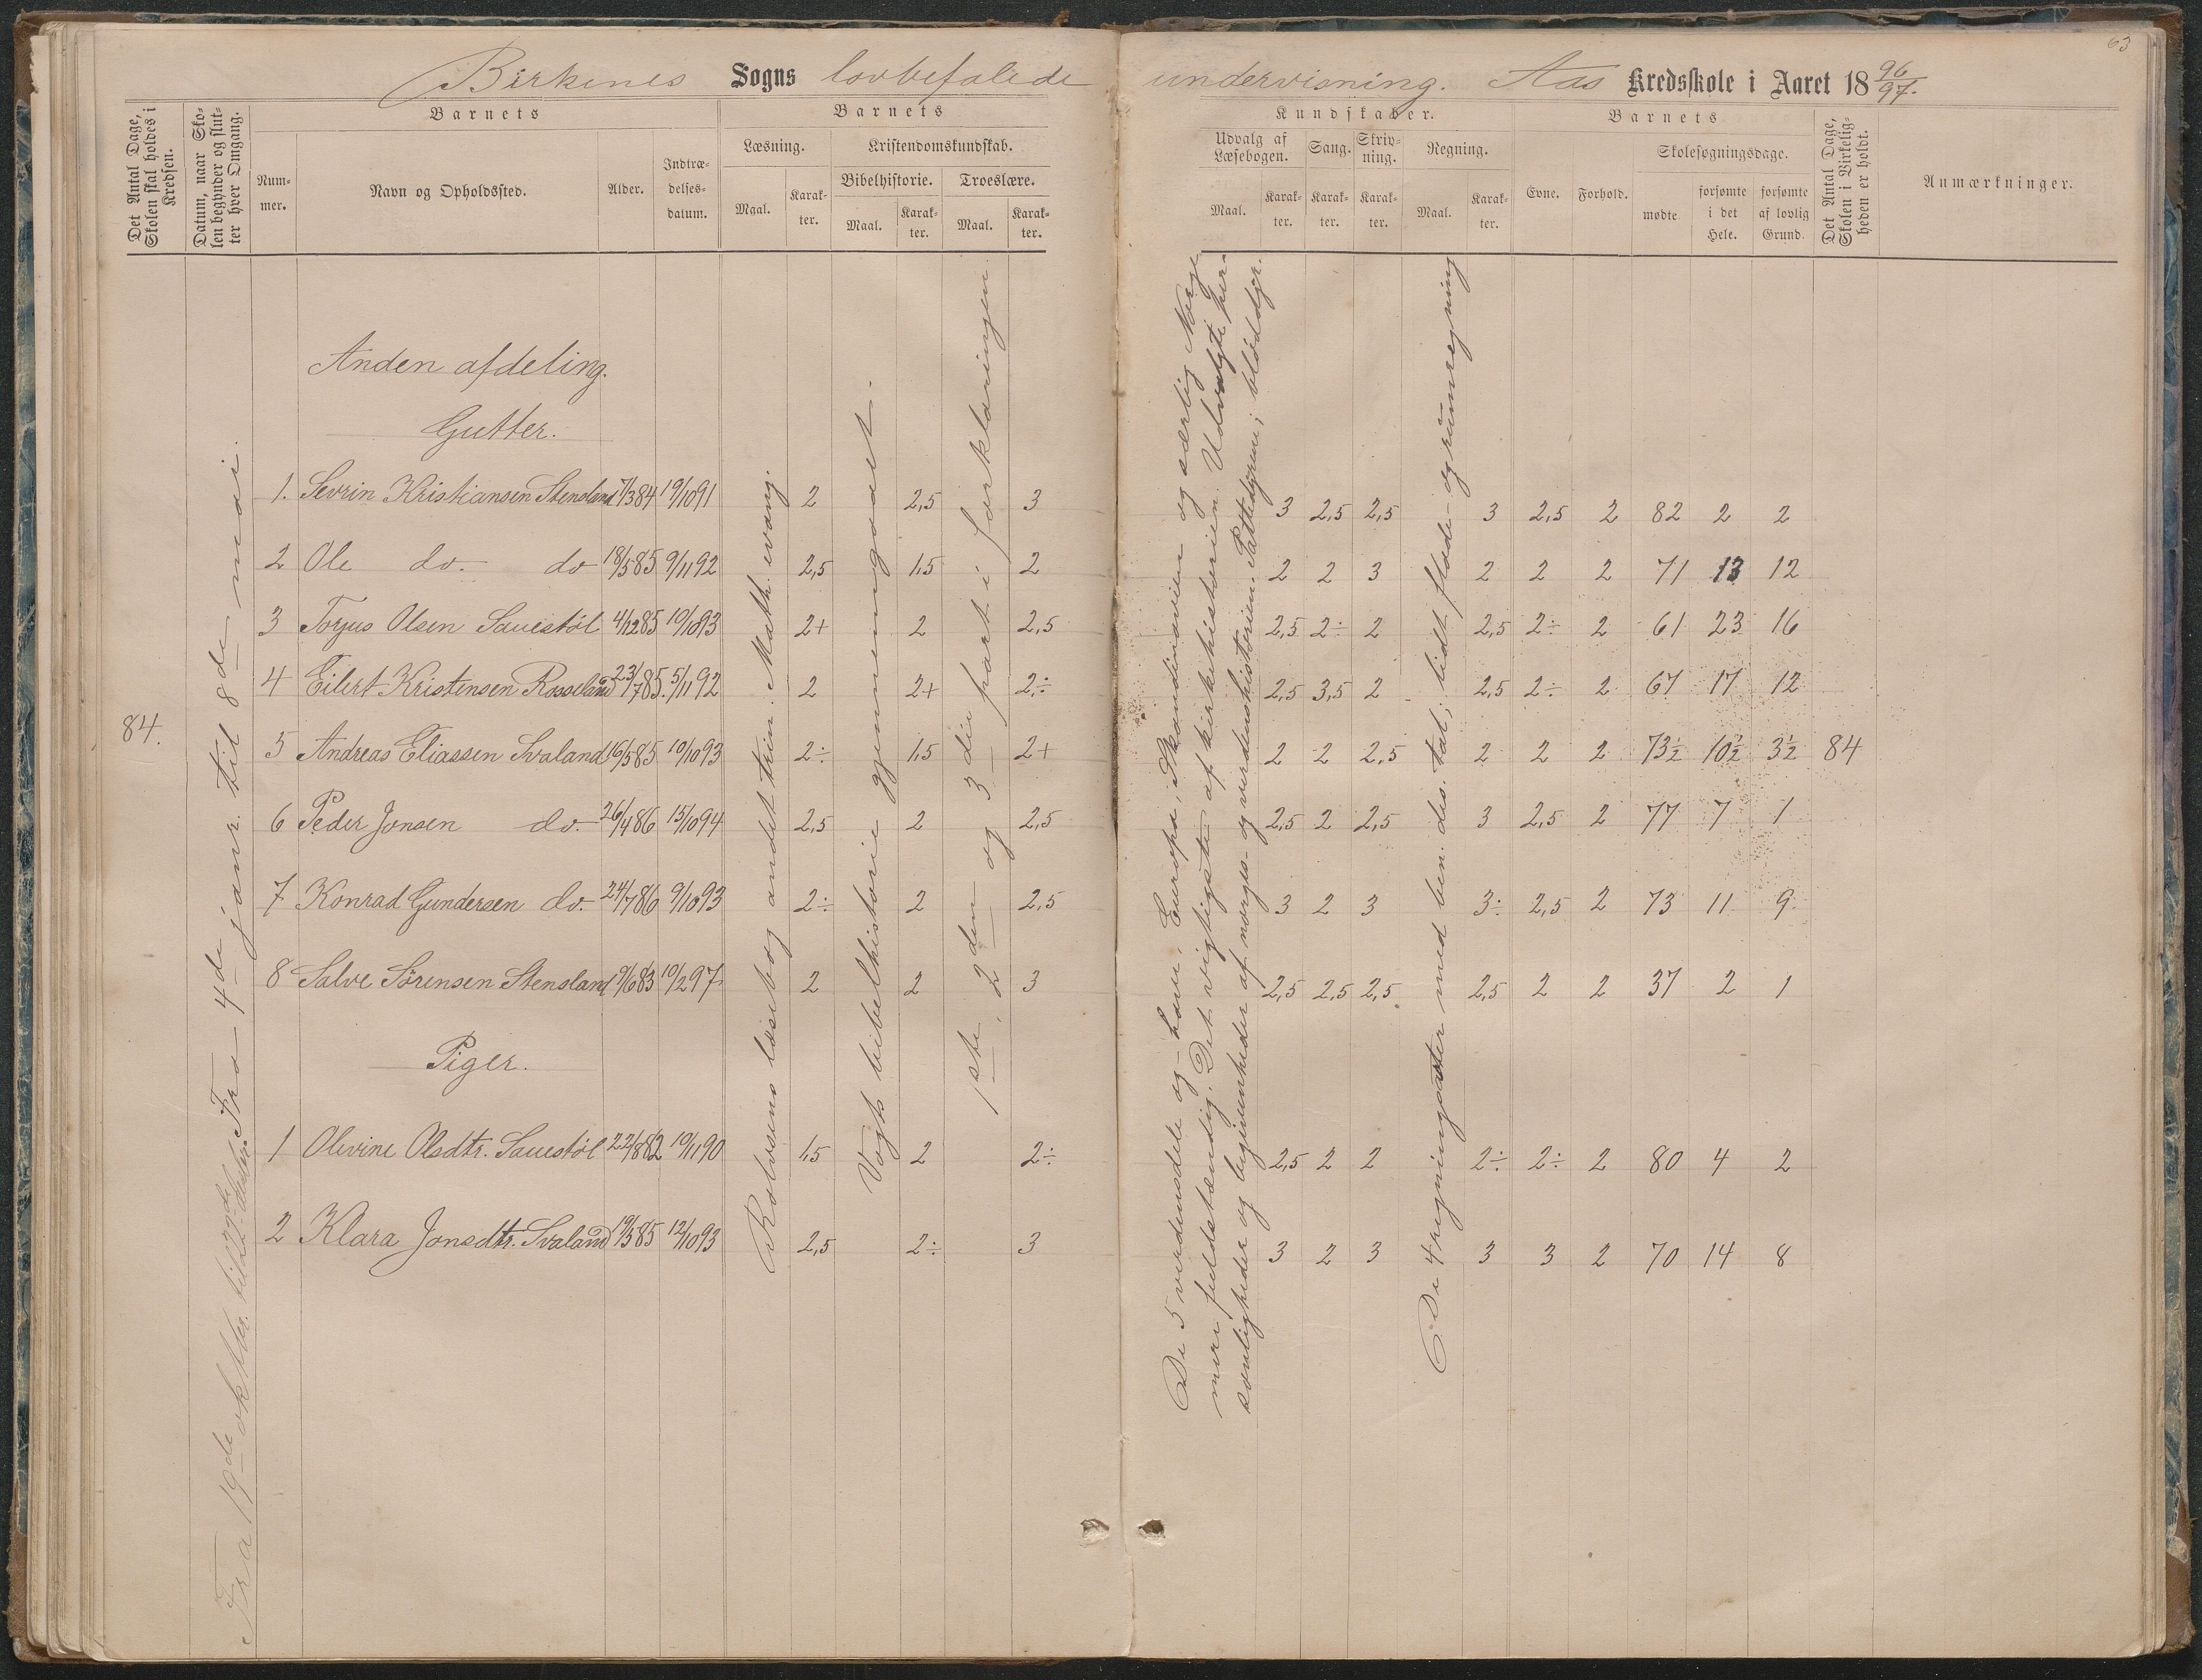 63
Birkenes Sogns lovbefalede undervisning. Aas Kredsskole i Aaret 18 96/97.
Det Antal Dage, Skolen skal holdes i Kredsen.
Datum, naar Skolen begynder og slutter hver Omgang.
Nummer.
Barnets
Navn og Opholdssted.
Alder.
Indtrædelsesdatum.
Barnets
Læsning.
Maal.
Karakter.
Kristendomskundskab.
Bibelhistorie.
Maal.
Karakter.
Troeslære.
Maal.
Karakter.
Kundskaber.
Udvalg af Læsebogen.
Maal.
Karakter.
Sang.
Karakter.
Skrivning.
Karakter.
Regning.
Maal.
Karakter.
Barnets
Evne.
Forhold.
Skolesøgningsdage.
mødte
forsømte i det Hele.
forsømte af lovlig Grund.
Det Antal Dage, Skolen i Virkeligheden er holdt.
Anmærkninger.
Anden afdeling.
Gutter.
1. Sevrin Kristiansen Stensland 7/3 84 19/10 91 2 2,5 3 3 2,5 2,5 3 2,5 2 82 2 2
2 Ole do. do 18/5 85 9/11 92 2,5 1,5 2 2 2 3 2 2 2 71 13 12
3 Torjus Olsen Sauestøl 4/12 85 10/10 93 2+ 2 2,5 2,5 2÷ 2 2,5 2÷ 2 61 23 16
4 Eilert Kristensen Rosseland 23/7 85. 5/11 92 2 2+ 2÷ 2,5 3,5 2 2,5 2÷ 2 67 17 12
84.
5 Andreas Eliassen Svaland 16/5 85 10/10 93 2÷ 1,5 2+ 2 2 2,5 2 2 2 73½ 10½ 3½ 84
6 Peder Jonsen do. 26/4 86 15/10 94 2,5 2 2,5 2,5 2 2,5 3 2,5 2 77 7 1
7 Konrad Gundersen do. 24/7 86 9/10 93 2÷ 2 2,5 3 2 3 3÷ 2,5 2 73 11 9
8 Salve Sørensen Stensland 9/6 83 10/2 97 2 2 3 2,5 2,5 2,5 2,5 2 2 37 2 1
Piger.
1 Olivine Olsdtr. Sauestøl 22/8 82 10/11 90 1,5 2 2÷ 2,5 2 2 2÷ 2÷ 2 80 4 2
2 Klara Jonsdtr. Svaland 19/5 85 12/10 93 2,5 2÷ 3 3 2 3 3 3 2 70 14 8
Fra 19de oktbr. til
Fra 4de janr. til 8de mai.
Rolvsens læsebog andet trin. Math. evang.
Vogts bibelhistorie gjennemgaaet.
1ste, 2den og 3die part i forklaringen
De 5 verdensdele og -have. Europa, Skandinavien og særlig Norge
mere fuldstændig. Det vigtigste af kirkehistorien. Udvalgte per-
sonligheder og begivenheder af norges- og verdenshistorien. Pattedyrene; bløddyr.
De 4 regningsarter med ben. des. tal; lidt flade- og rumregning